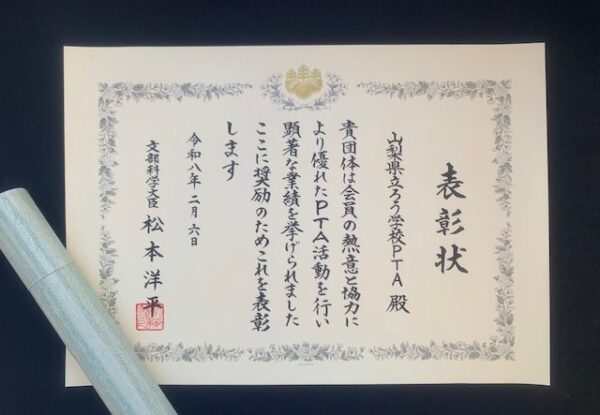 表彰状
山梨県立ろう学校PTA 殿
貴団体は会員の熱意と協力に
より優れたPTA活動を行い
顕著な業績を挙げられました
ここに奨励のためこれを表彰
します
令和八年二月六日
文部科学大臣 松本洋平